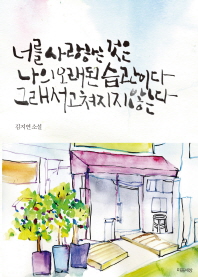 너를 사랑하는 것은
나의 오래된 습관이다
그래서 고쳐지지 않는다
김지연 소설